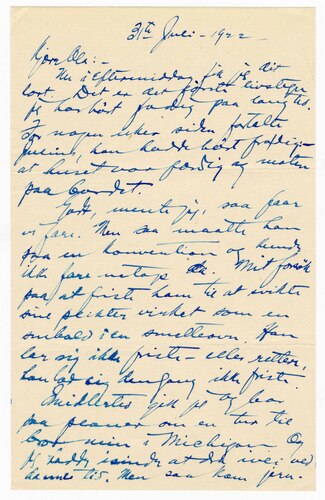 31th Juli - 1922
Kjære Ola:-
Nu i Eftermiddag fik jeg dit
kort. Det er det første livstegn
jeg har hørt fra dig paa lang tid.
For nogen uker siden fortalte
han hadde hørt fra dig:-
at huset var færdig og maten
paa bordet.
Godt, mente jeg, saa faar
vi fare. Men saa maatte han
paa en konvention og kunde
ikke fare netop da. Mit forsøk
paa at friste ham til at svikte
sine plikter virket som en
snebald i en smelteovn. Han
lar sig ikke friste - eller rettere,
han lod sig dengang ikke friste.
Imidlertid gik jeg og bar
paa planer om en tur til
bror min i Michigan. Og
jeg
Men saa kom